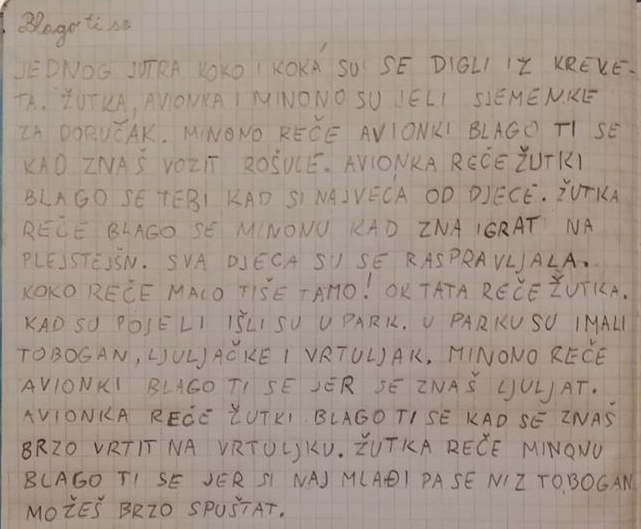 Blago ti se
JEDNOG JUTRA KOKO I KOKA SU SE DIGLI IZ KREVE-
TA. ŽUTKA, AVIONKA I MINONO SU JELI SJEMENKE
ZA DORUČAK. MINONO REČE AVIONKI BLAGO TI SE
KAD ZNAŠ VOZIT ROŠULE. AVIONKA REČE ŽUTKI
BLAGO SE TEBI KAD SI NAJVEĆA OD DJECE. ŽUTKA
REČE BLAGO SE MINONU KAD ZNA IGRAT NA
PLEJSTEJŠN. SVA DJECA SU SE RASPRAVLJALA.
KOKO REČE MALO TIŠE TAMO! OK TATA REČE ŽUTKA.
KAD SU POJELI IŠLI SU U PARK. U PARKU SU IMALI
TOBOGAN, LJULJAČKE I VRTULJAK. MINONO REČE
AVIONKI BLAGO TI SE JER SE ZNAŠ LJULJAT.
AVIONKA REČE ŽUTKI BLAGO TI SE KAD SE ZNAŠ
BRZO VRTIT NA VRTULJKU. ŽUTKA REČE MINONU
BLAGO TI SE JER SI NAJ MLAĐI PA SE NIZ TOBOGAN
MOŽEŠ BRZO SPUŠTAT.